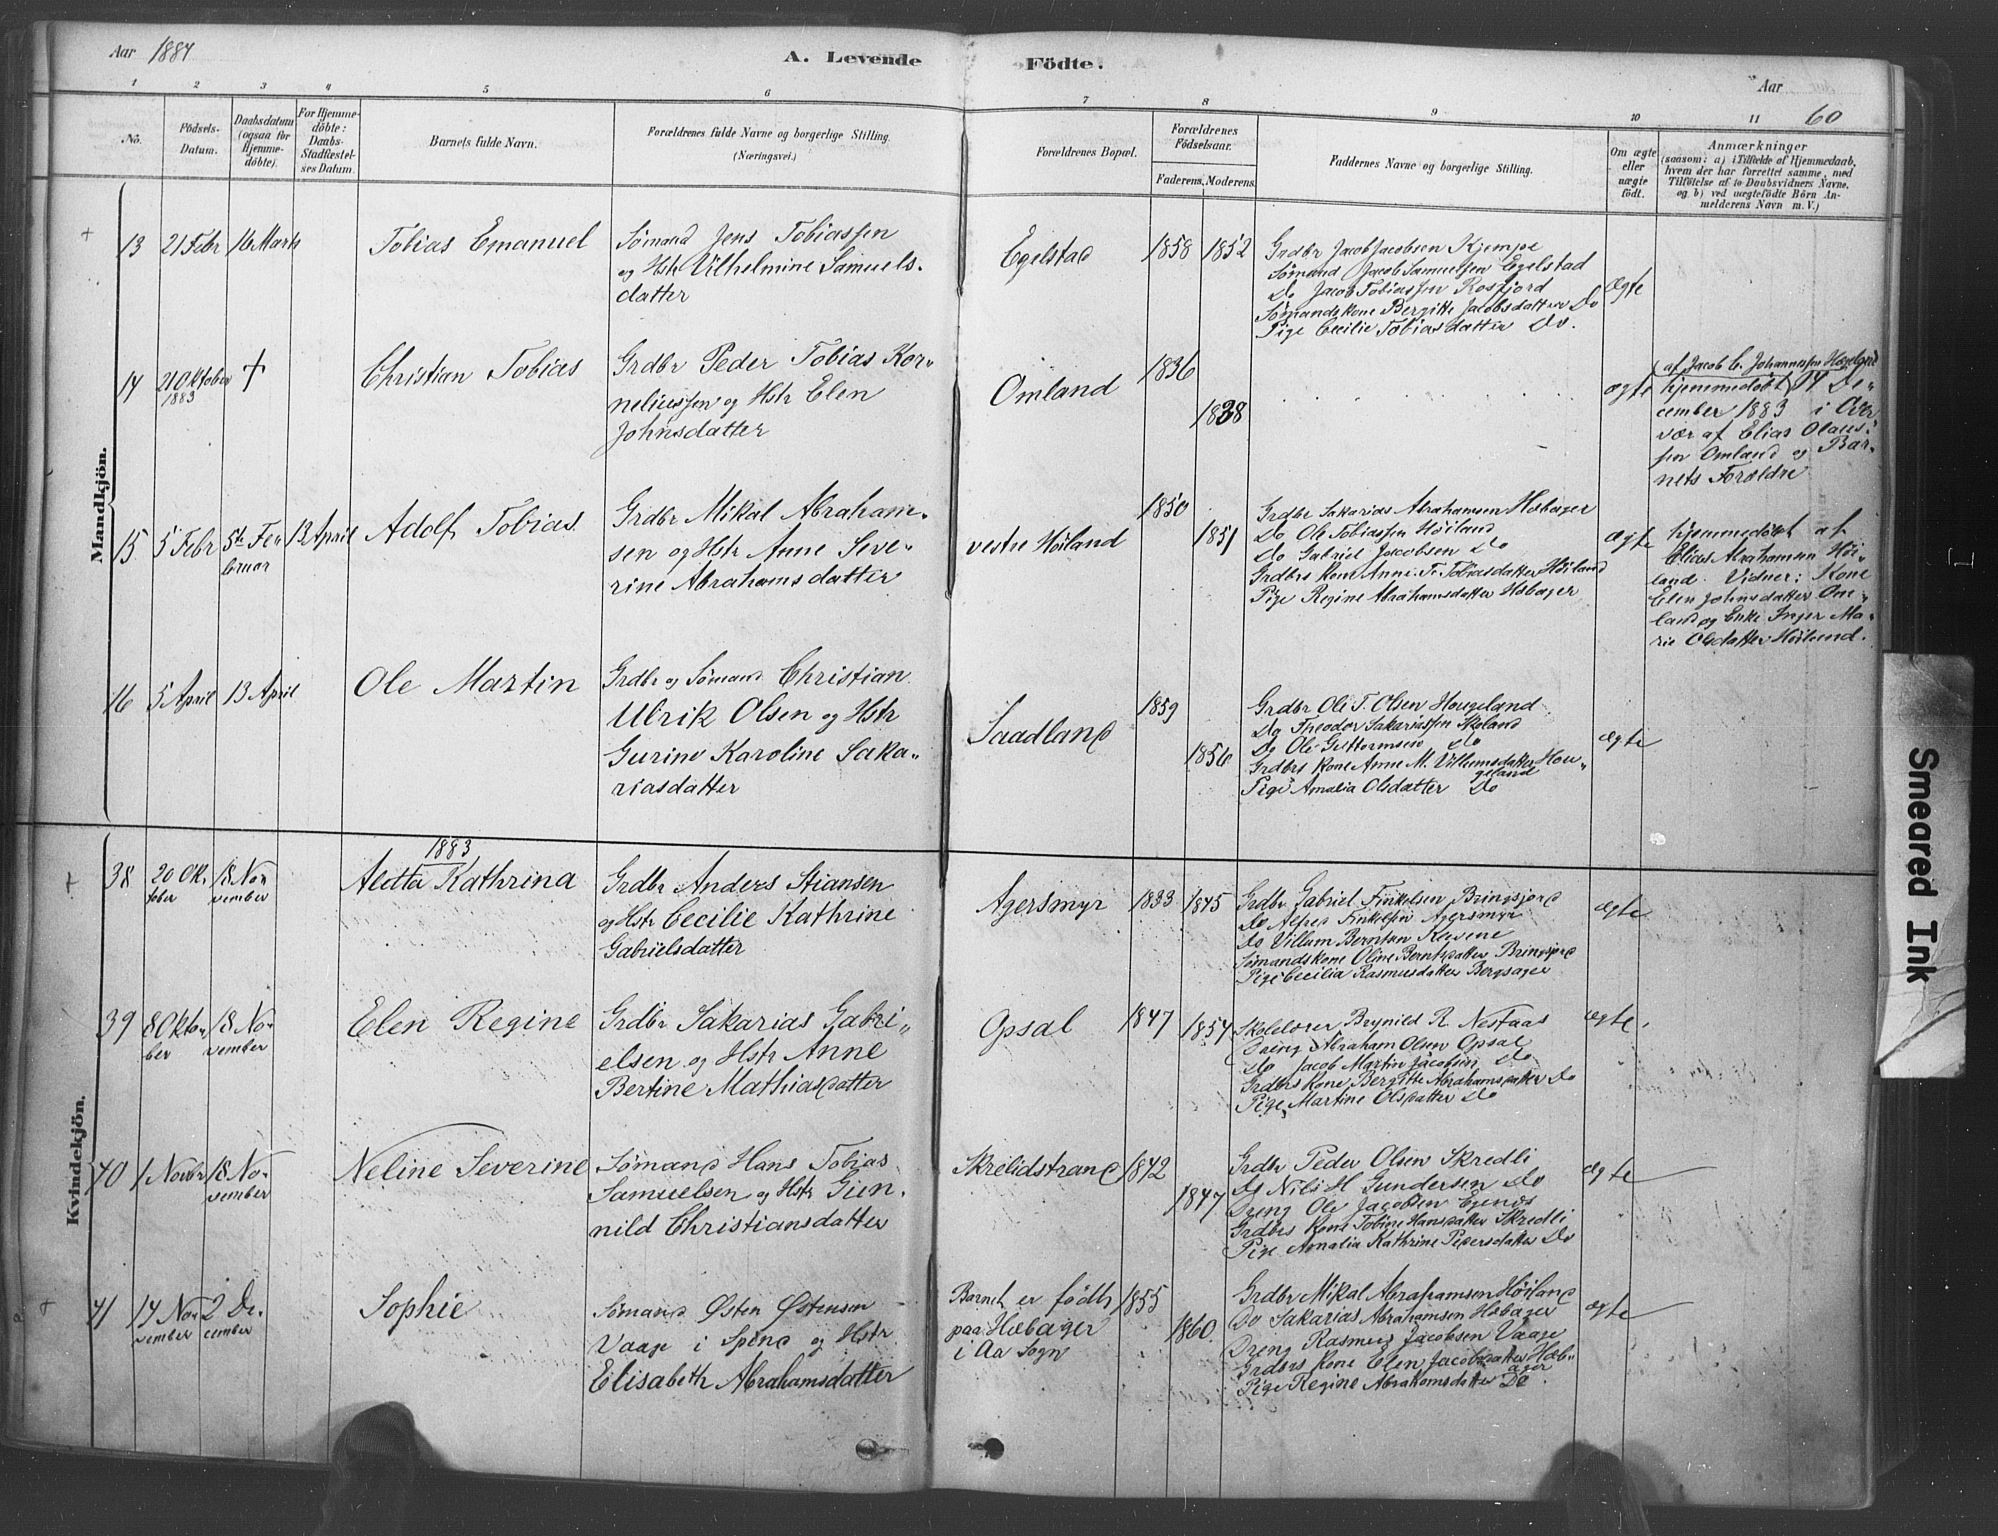 Aar 1884
A. Levende Födte.
Aar
60
1 2 3 4 5 6 7 8 9 10 11
No.
Födsels-
Datum.
Daabsdatum
(ogsaa for
Hjemme-
döbte).
For Hjemme-
döbte:
Daabs-
Stadfæstel-
ses Datum.
Barnets fulde Navn.
Forældrenes fulde Navne og borgerlige Stilling.
(Næringsvei.)
Forældrenes Bopæl.
Forældrenes
Födselsaar.
Faderens. Moderens.
Faddernes Navne og borgerlige Stilling.
Om ægte
eller
uægte
födt.
Anmærkninger
(saasom: a) i Tilfælde af Hjemmedaab,
hvem der har forrettet samme, med
Tilföielse af to Daabsvidners Navne,
og b) ved uægtefödte Börn An-
melderens Navn m. V.)
Mandkjön.
13 21 Febr 16 Marts
Tobias Emanuel
Sømand Jens Tobiassen
og Hstr Vilhelmine Samuels-
datter
Egelstad
1858 1852
Grdbr Jacob Jacobsen Kjempe
Sømand Jacob Samuelsen Egelstad
Do Jacob Tobiassen Rosfjord
Sømandskone Bergitte Jacobsdatter Do
Pige Cecilie Tobiasdatter Do.
Ægte
14 21 Oktober
1883
+
Christian Tobias
Grdbr Peder Tobias Kor-
neliussen og Hstr Elen
Johnsdatter
Omland
1836
1838
ægte
af Jacob C. Johannessen
hjemmedøbt 14 De-
cember 1883 i Over
vær af Elias Olaus-
sen Omland og Bar-
nets Forældre
15 5 Febr 5te Fe-
bruar
13 April
Adolf Tobias
Grdbr Mikal Abraham-
sen og Hstr Anne Seve-
rine Abrahamsdatter
vestre Höiland
1850
1851
Grdbr Sakarias Abrahamsen Hæbager
Do Ole Tobiassen Höiland
Do Gabriel Jacobsen Do
Grdbrs Kone Anne T. Tobiasdatter Höiland
Pige Regine Abrahamsdatter Hæbager
ægte
hjemmedøbt af
Elias Abrahamsen Höi-
land. Vidner: Kone
Elen Johnsdatter Om-
land og Enke Inger Ma-
rie Olsdatter Höiland.
16 5 April 13 April
Ole Martin
Grdbr og Sømand Christian
Ulrik Olsen og Hstr
Gurine Karoline Saka-
riasdatter
Saadland
1859
1856
Grdbr Ole T. Olsen Hougeland
Do Theodor Sakariassen Skoland
Do Ole Guttormsen Do
Grdbrs Kone Anne M. Villumsdatter Hou-
geland
Pige Amalia Olsdatter Do
ægte
Kvindekjön.
1883
38 20 Ok-
tober
18 No-
vember
Aletta Kathrina
Grdbr Anders Stiansen
og Hstr Cecilie Kathrine
Gabrielsdatter
Agersmyr
1833 1845
Grdbr Gabriel Finkelsen Bringsjord
do Alfred Finkelsen Agersmyr
do Villum Berntsen
Sømandskone Oline Berntsdatter Bringsjord
Pige Cecilia Rasmusdatter Bergsager
ægte
39 8 Okto-
ber
18 No-
vember
Elen Regine
Grdbr Sakarias Gabri-
elsen og Hstr Anne
Bertine Mathiasdatter
Opsal
1847 1854
Skolelærer Brynild R. Nestaas
Dreng Abraham Olsen Opsal
do Jacob Martin Jacobsen Do
Grdbrs Kone Bergitte Abrahamsdatter Do
Pige Martine Olsdatter Do
ægte
40 1 Novbr 18 No-
vember
Neline Severine
Sømand Hans Tobias
Samuelsen og Hstr Gun-
nild Christiansdatter
Skrelidstrand
1842
1847
Grdbr Peder Olsen Skredli
Do Nils H. Gundersen Do
Dreng Ole Jacobsen Egenes
Grdbrs Kone Tobine Hansdatter Skredli
Pige Amalia Kathrine Pedersdatter Do
ægte
41 14 No-
vember
2 De-
cember
Sophie
Sømand Østen Østensen
Vaage i Spind og Hstr
Elisabeth Abrahamsdatter
Barnet er födt
paa Hæbager
i Aa Sogn
1855
1860
Grdbr Mikal Abrahamsen Höiland
Do Sakarias Abrahamsen Hæbager
Dreng Rasmus Jacobsen Vaage
Grdbrs Kone Elen Jacobsdatter Hæb-
ager
Pige Regine Abrahamsdatter Do
ægte
Smeared Ink